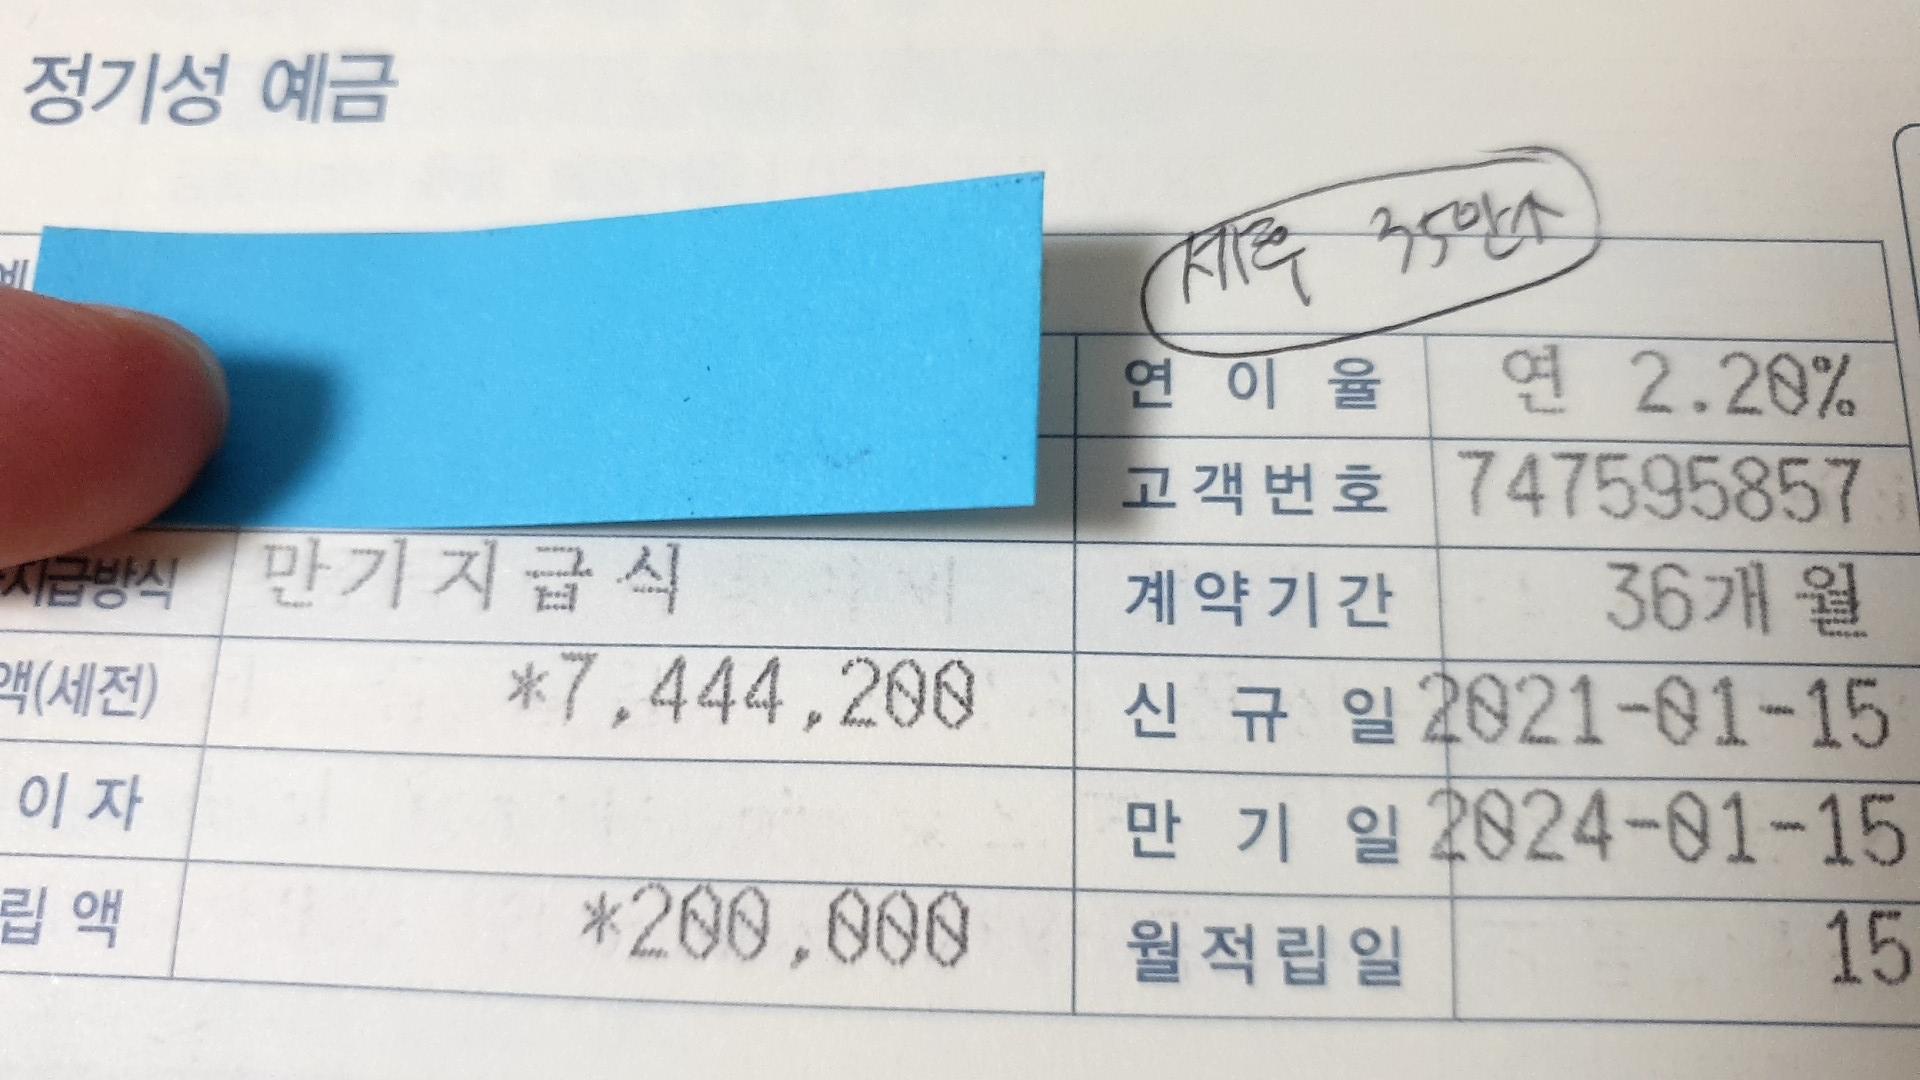 정기성 예금
세후 35만↑
연 이 율 연 2.20%
고객번호 747595857
지급방식 만기지급식 계약기간 36개월
액(세전) *7,444,200 신 규 일 2021-01-15
이 자 만 기 일 2024-01-15
립 액 *200,000 월적립일 15